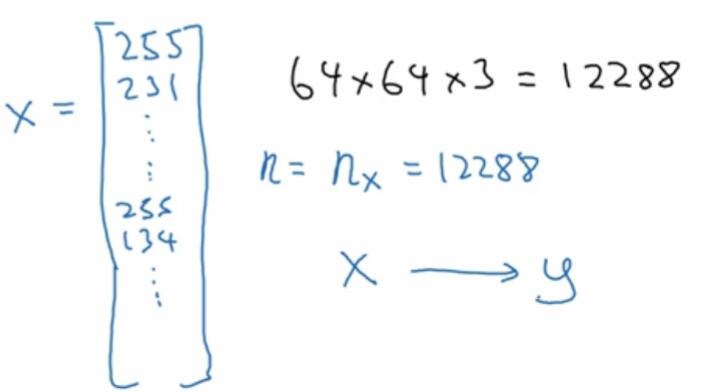 x = [255
231
⋮
⋮
255
134
⋮
]
64×64×3 = 12288
n = nx = 12288
x ⟶ y